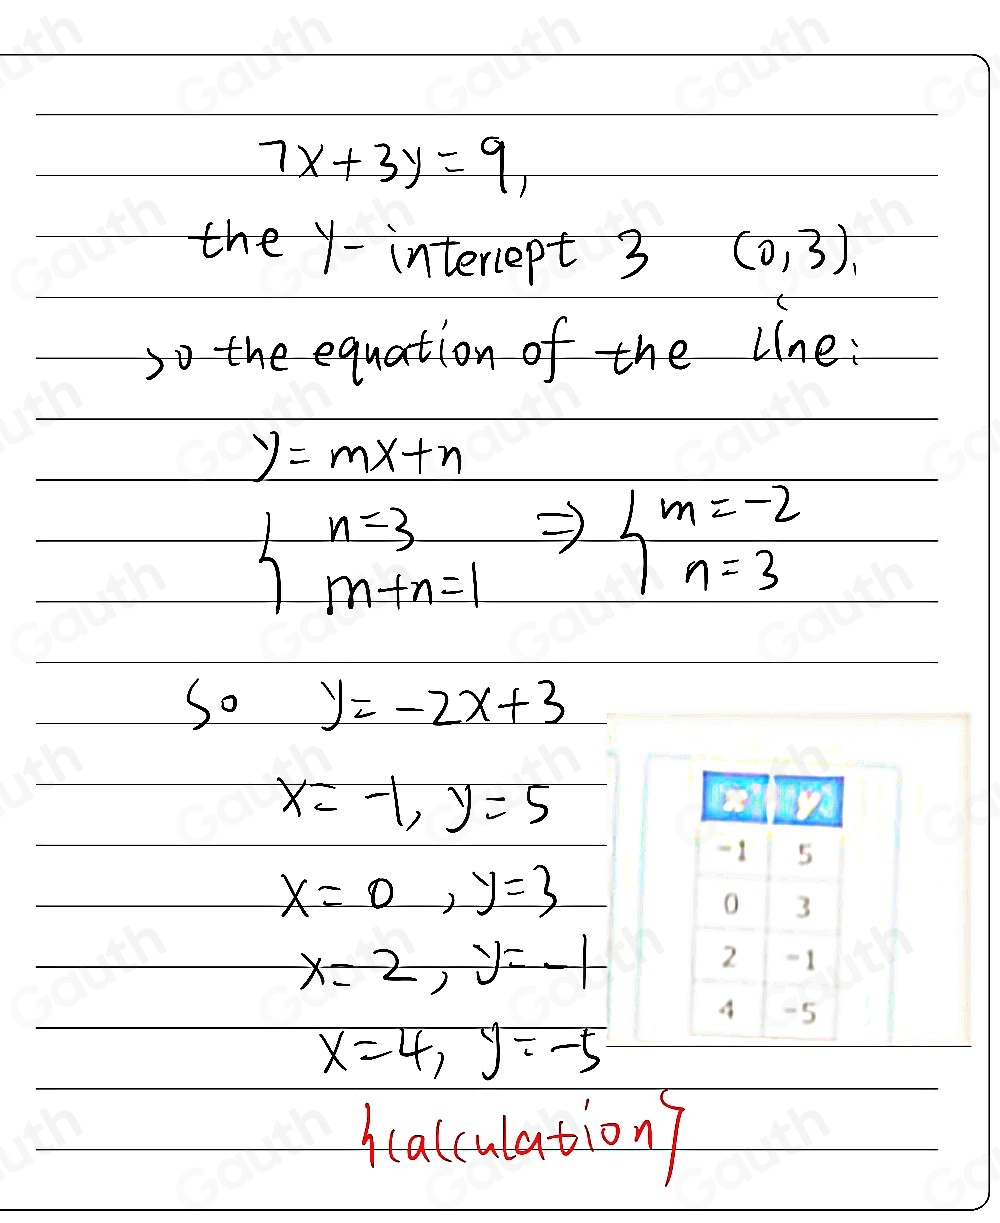 7x+3y=9,
the y-intercept 3 (0,3),
so the equation of the line:
y=mx+n
{ n=3 ⇒ { m=-2
m+n=1 n=3
So y=-2x+3
x=-1, y=5
x=0, y=3
x=2, y=-1
x=4, y=-5
x y
-1 5
0 3
2 -1
4 -5
{calculation}
Gauth